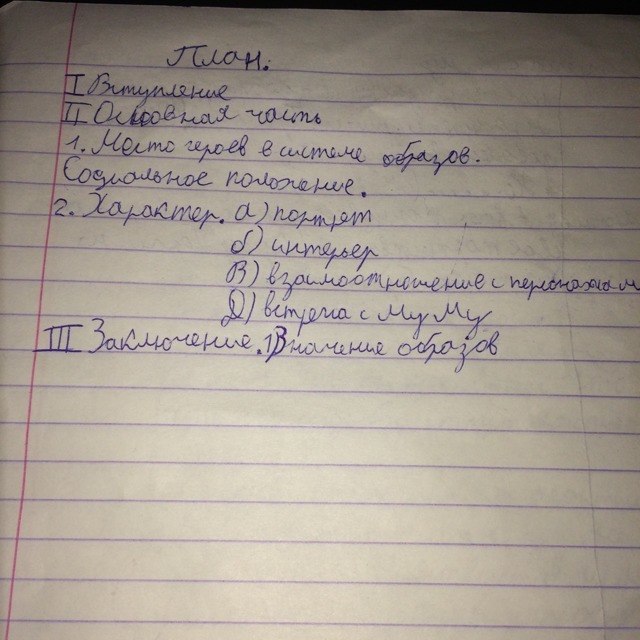 План.
I Вступление
II Основная часть
1. Место героев в системе образов.
Социальное положение.
2. Характер. а) портрет
б) интерьер
В) взаимоотношение с персонажами
Д) встреча с Му Му
III Заключение. 1) Значение образов